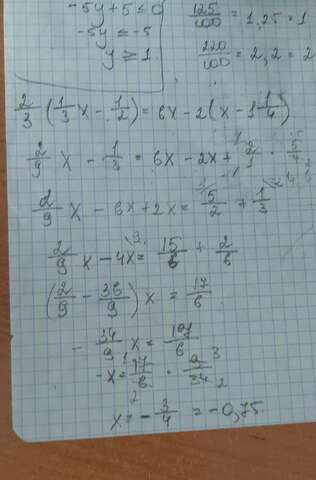 -5y+5≤0
-5y ≤ -5
y ≥ 1
125/100 = 1,25 = 1
220/100 = 2,2 = 2
2/3 (1/3 x - 1/2) = 6x - 2(x - 1 1/4)
2/9 x - 1/3 = 6x - 2x + 2/1 · 5/4
2/9 x - 6x + 2x = 5/2 + 1/3
2/9 x - 4x = 15/6 + 2/6
(2/9 - 36/9) x = 17/6
- 34/9 x = 17/6
-x = 17/6 · 9/34
x = - 3/4 = -0,75.